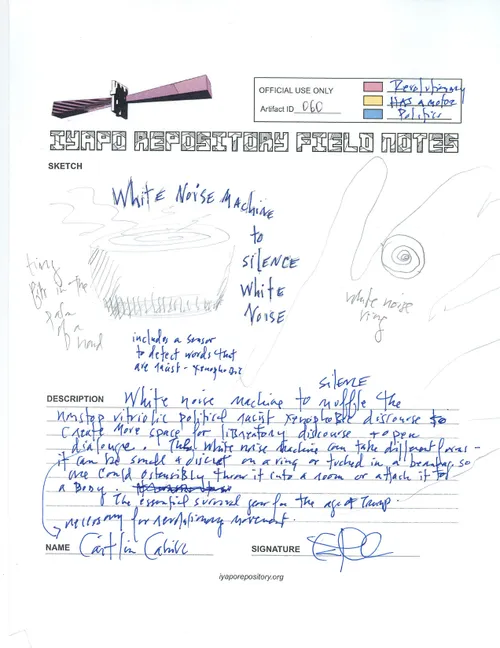 OFFICIAL USE ONLY
Artifact ID 060
Revolutionary
HAS A motor
Politics
IYAPO REPOSITORY FIELD NOTES
SKETCH
White Noise Machine
to
SilENCE
White
Noise
tiny
Fits in the
palm
of a
hand
white noise
ring
includes a sensor
to detect words that
are racist - xenophobic
silENCE
DESCRIPTION White noise machine to muffle the
nonstop vitriolic political racist xenophobic discourse to
create more space for liberatory discourse + open
dialouge. The white noise machine can take different forms -
it can be small + discret on a ring or tucked in a beanbag, so
one could ostensibly throw it into a room or attach it to
a Body
The essential survival gear for the age of Trump.
necessary for revolutionary movement.
NAME Caitlin
SIGNATURE
iyaporepository.org